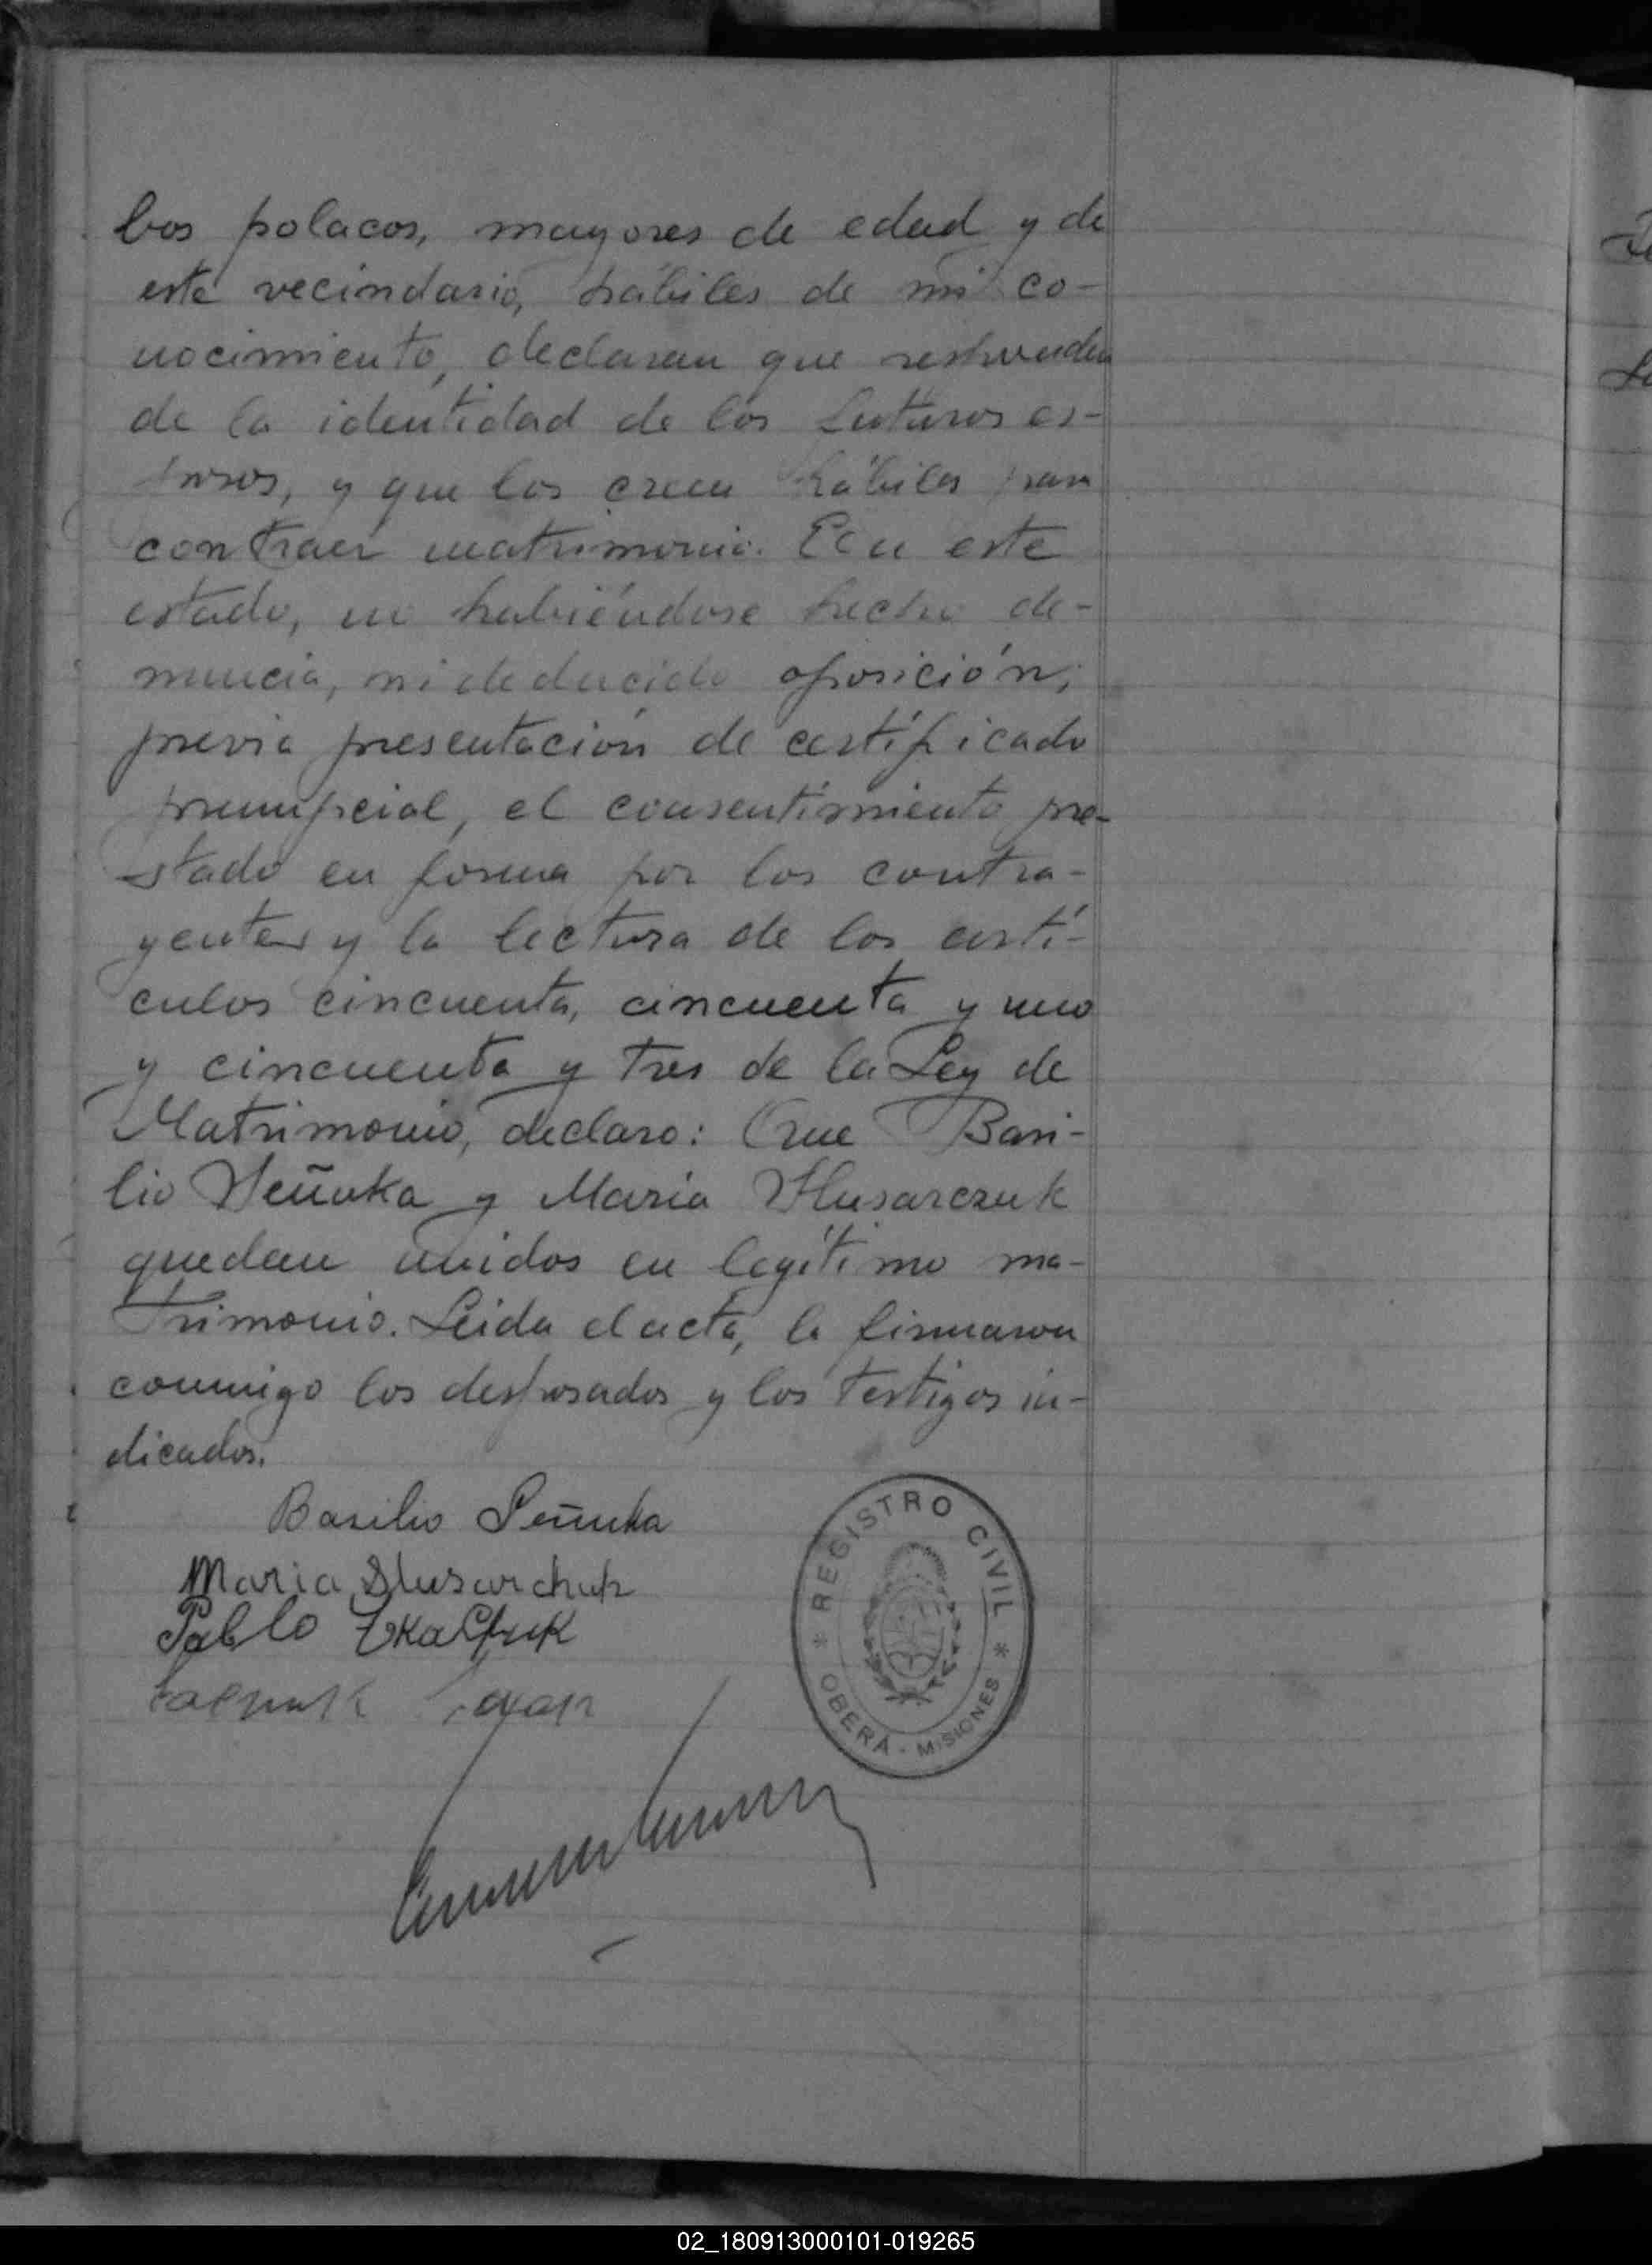 bos polacos, mayores de edad y de
este vecindario, hábiles de mi co-
nocimiento, declaran que responden
de la identidad de los futuros es-
posos, y que los creen hábiles para
contraer matrimonio. En este
estado, no habiéndose hecho de-
nuncia, ni deducido oposición;
previa presentación de certificado
prenupcial, el consentimiento pre-
stado en forma por los contra-
yentes y la lectura de los artí-
culos cincuenta, cincuenta y uno
y cincuenta y tres de la Ley de
Matrimonio, declaro: Que Basi-
lio Señuka y Maria Slusarczuk
quedan unidos en legítimo ma-
trimonio. Leida el acta, la firmaron
conmigo los desposados y los testigos in-
dicados.
Basilio Señuka
Maria Slusarchuk
Pablo
REGISTRO CIVIL
* OBERÁ - MISIONES *
02_180913000101-019265